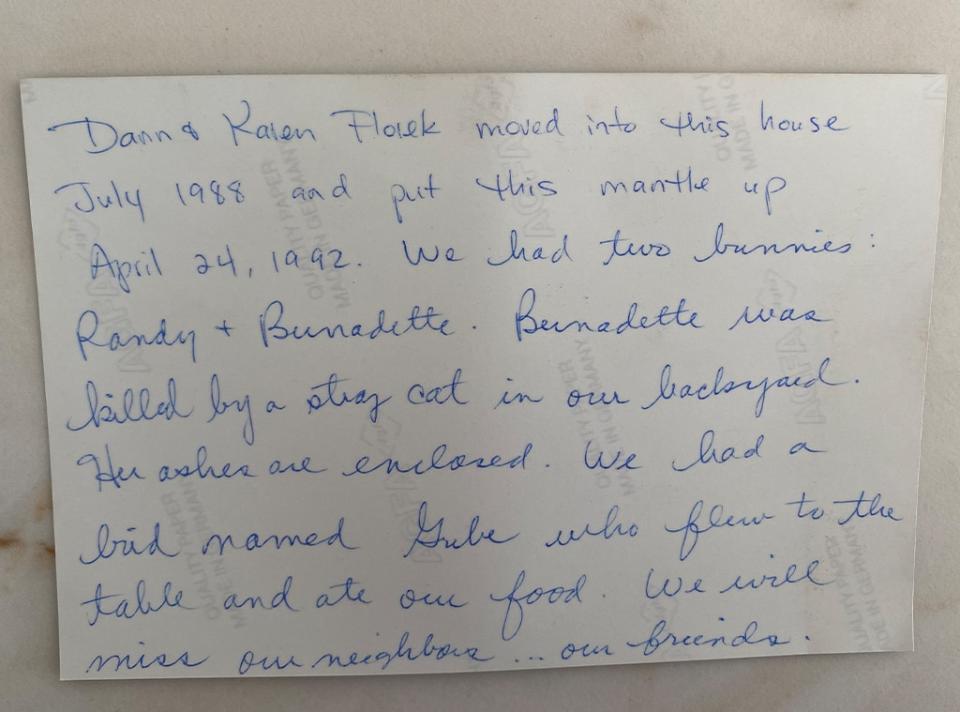 Dann & Karen Florek moved into this house
July 1988 and put this mantle up
April 24, 1992. We had two bunnies:
Randy + Bernadette. Bernadette was
killed by a stray cat in our backyard.
Her ashes are enclosed. We had a
bird named Gube who flew to the
table and ate our food. We will
miss our neighbors... our friends.